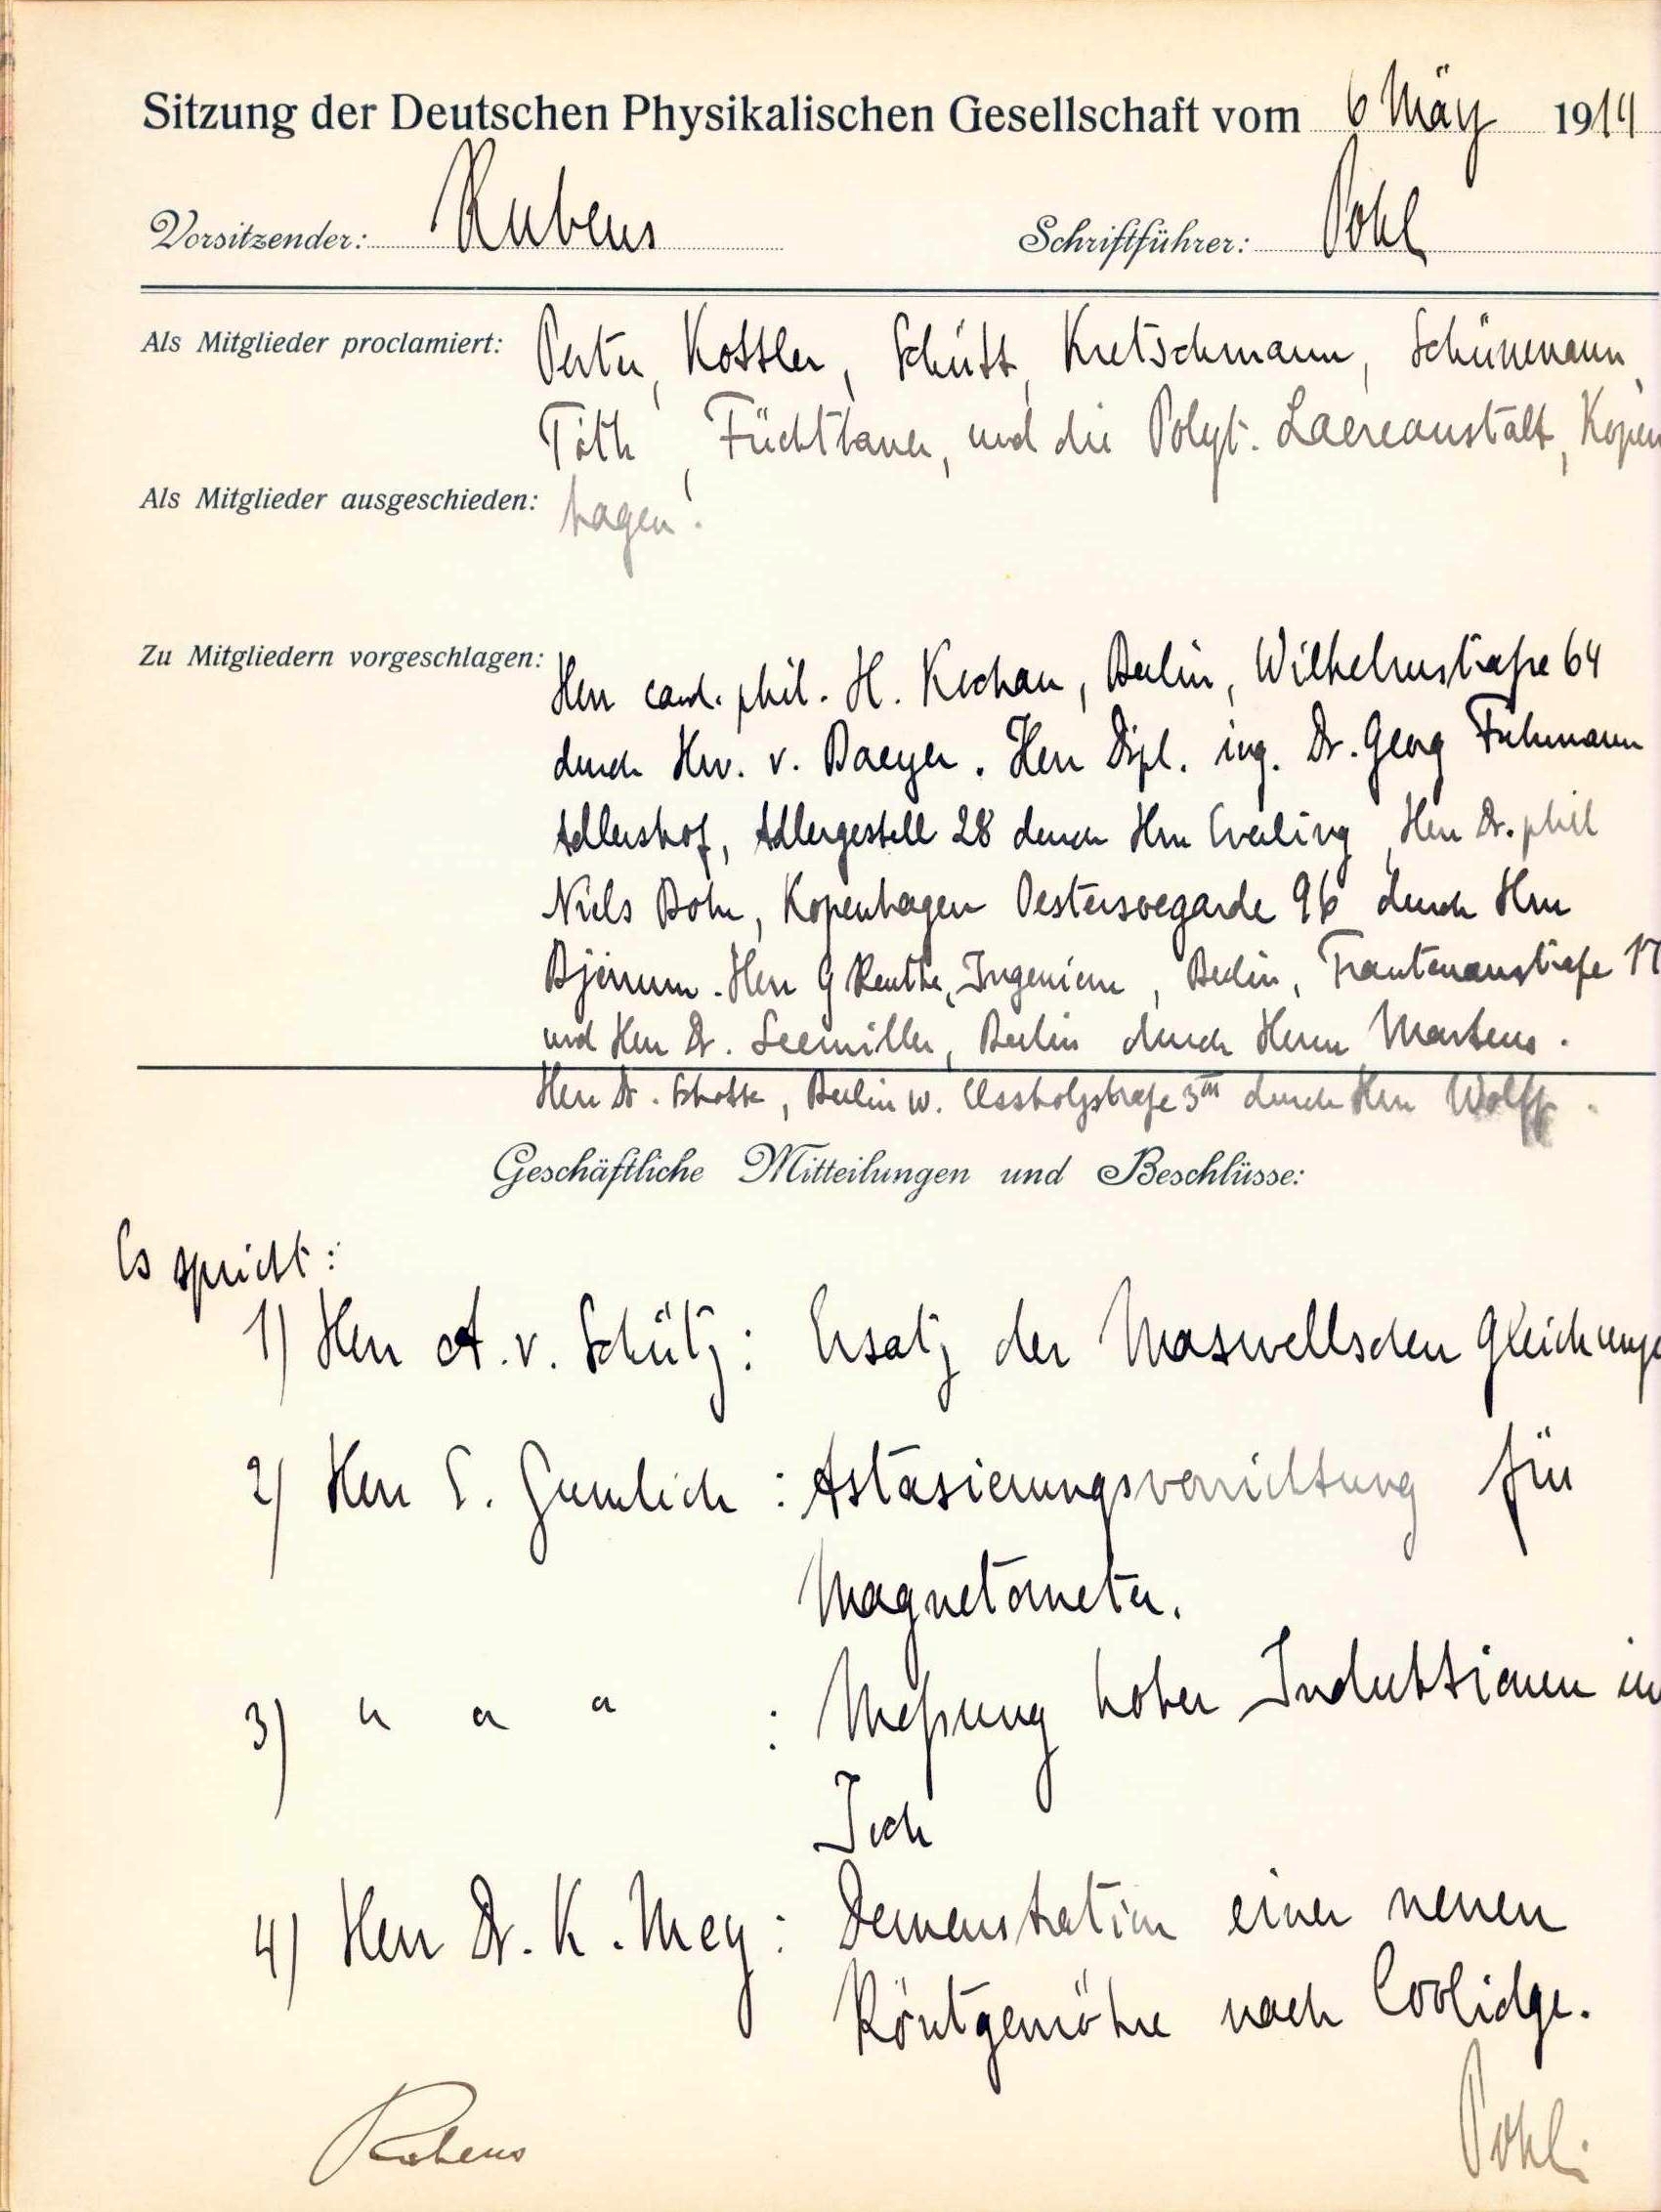 Sitzung der Deutschen Physikalischen Gesellschaft vom 6 Mäy 1914
Vorsitzender: Rubens Schriftführer: Pohl
Als Mitglieder proclamiert: Kossler, Schütt, Kretschmann, Schünemann,
Tóth, Füchtbauer, und die Polyt. Laereanstalt, Kopen
Als Mitglieder ausgeschieden: hagen.
Zu Mitgliedern vorgeschlagen: Herr cand. phil. H. Berlin, Wilhelmstraße 64
durch Hrn. v. Baeyer. Herr Dipl. ing. Dr. Georg Fuhrmann
Adlershof, Adlergestell 28 durch Hrn Everling, Herr Dr. phil
Niels Bohr, Kopenhagen 96 durch Hrn
Bjerrum. Herr G Reuthe, Ingenieur, Berlin, Trautenaustraße 17
und Herr Dr. Seemiller, Berlin durch Herrn Martens.
Herr Dr. Berlin W. durch Hrn Wolff.
Geschäftliche Mitteilungen und Beschlüsse:
Es spricht:
1) Herr A. v. Schütz: Ersatz der Maxwellschen Gleichunge
2) Herr E. Gumlich: Astasierungsvorrichtung für
Magnetometer.
3) " " " : Meßung hoher Induktionen im
Joch
4) Herr Dr. K. Mey: Demonstration einer neuen
Röntgenröhre nach Coolidge.
Rubens Pohl.